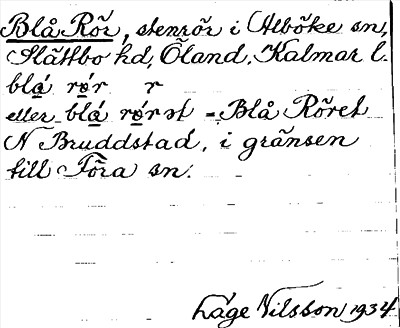 Blå Rör, stenrör i Alböke sn,
Slättbo hd, Öland, Kalmar l.
blå rør r
eller blå rør ət = Blå Röret
N Bruddstad, i gränsen
till Föra sn.
Låge Nilsson 1934